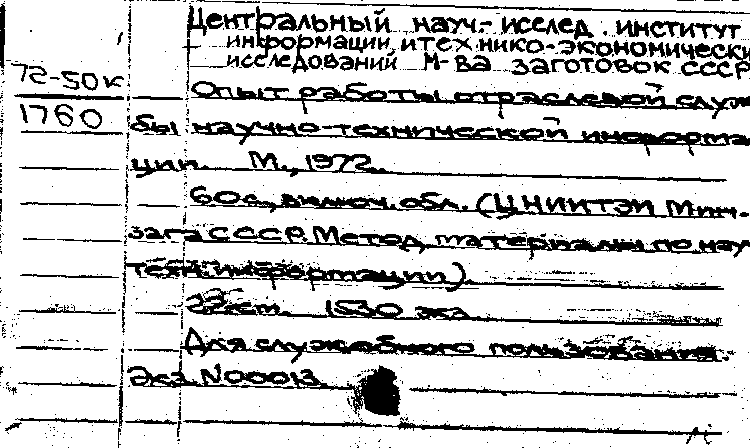 Центральный науч.-исслед. институт
информации и технико-экономически
исследований М-ва заготовок СССР
72-50к
Опыт работы отраслевой служ
1760
бы научно-технической информа
ции. М., 1972.
60с., включ. обл. (ЦНИИТЭИ Мин-
зага СССР. Метод. материалы по науч
техн. информации).
22 ист. 1530 экз.
Для служебного пользования.
Экз. N00013.